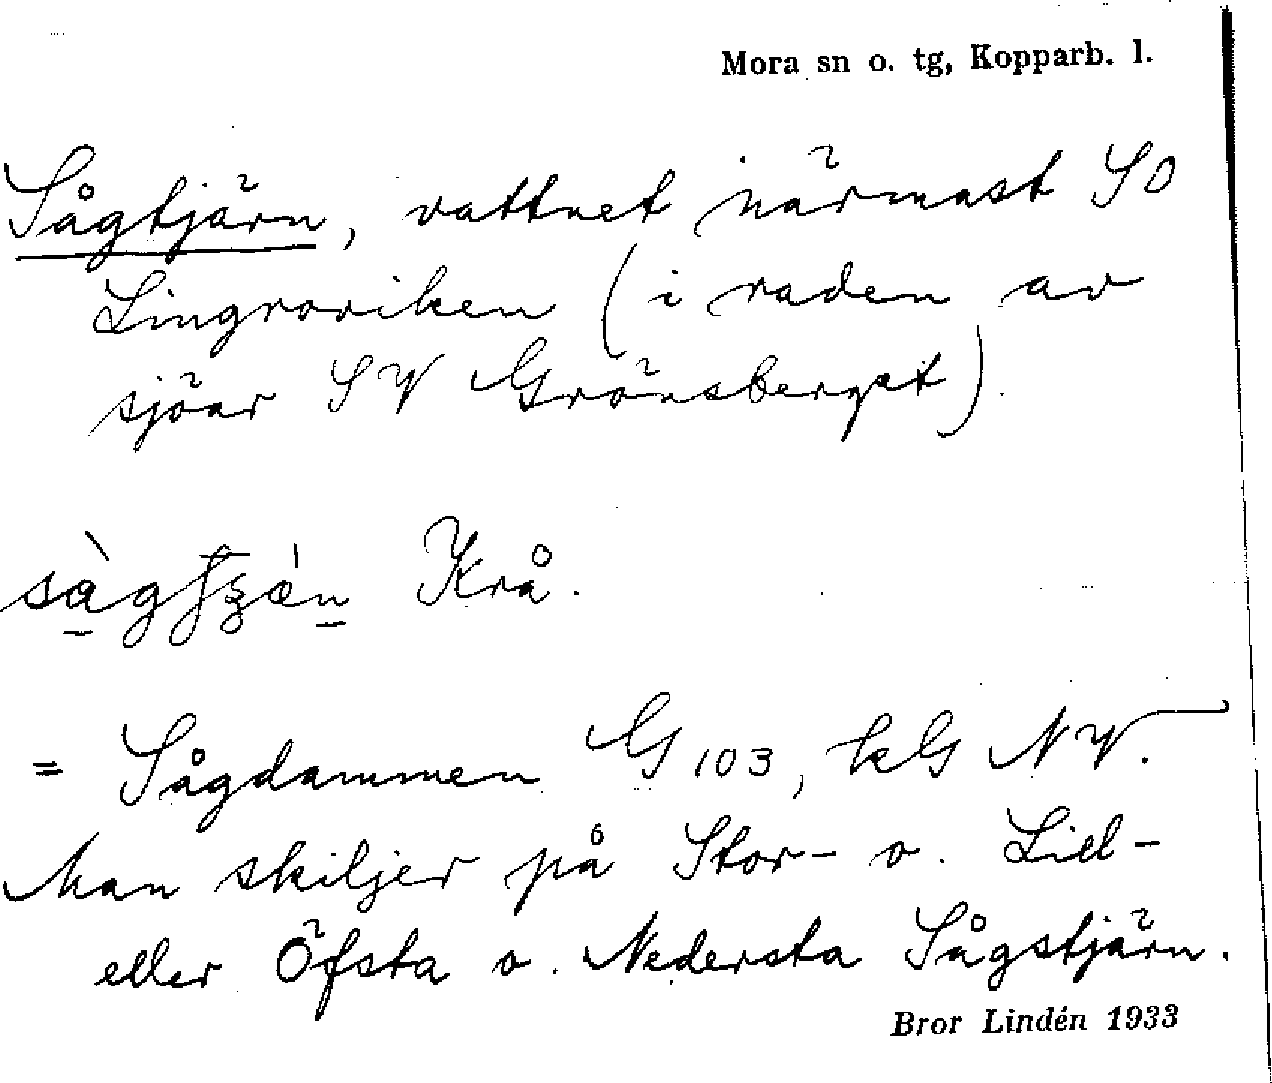 Mora sn o. tg, Kopparb. l.
Sågtjärn, vattnet närmast SO
Lingroviken (i raden av
sjöar SV Grönsberget).
Krå.
= Sågdammen G 103, kG NV.
Man skiljer på Stor- o. Lill-
eller Öfsta o. Nedersta Sågstjärn.
Bror Lindén 1933